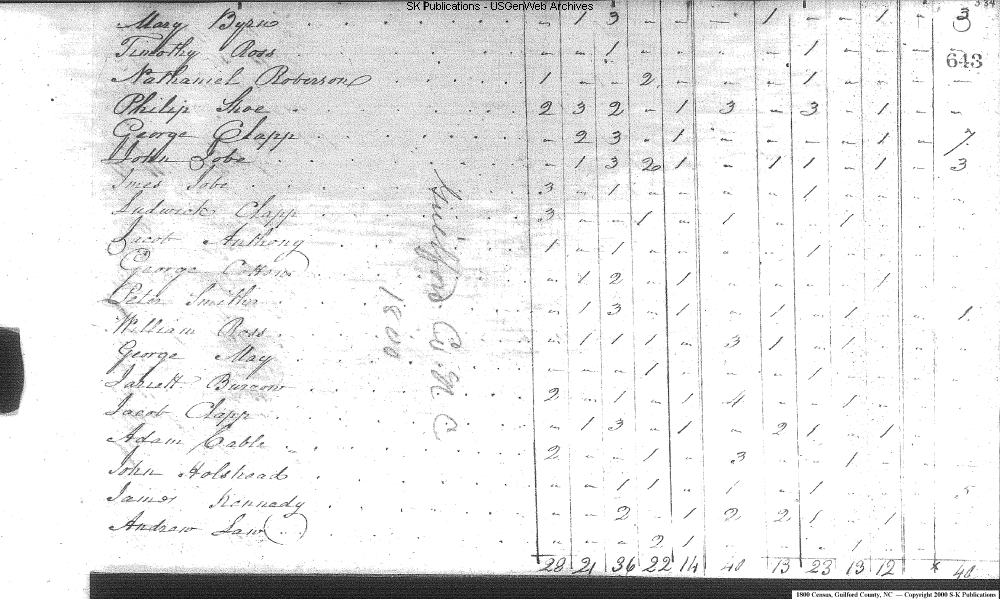 SK Publications - USGenWeb Archives
334
Mary Byrn - 1 3 - - - 1 - - 1 - 3
Timothy Ross - - 1 - - - - 1 - - - -
643
Nathaniel Roberson 1 - - 2 - - - 1 - - - -
Philip Shoe 2 3 2 - 1 3 - 3 - 1 - -
George Clapp - 2 3 - 1 - - - - 1 - 7
John Jobe - 1 3 2 1 - 1 1 - 1 - 3
Jobe 3 - 1 - - - - 1 - - - -
Ludwick Clapp 3 - - 1 - 1 - - 1 - - -
Jacob Anthony 1 - 1 - - - - 1 - - - -
George - 1 2 - 1 - - - - 1 - -
Peter - 1 3 - 1 - 1 - 1 - - 1
William Ross - 1 1 1 - 3 1 - 1 - - -
George May - - - 1 - - - 1 - - - -
Burrow 2 - 1 - 1 4 - - 1 - - -
Jacob Clapp - 1 3 - 1 - 2 1 - 1 - -
Adam Cable 2 - - 1 - 3 - - 1 - - -
John Holshead - - 1 1 - 1 - 1 - - - 5
James Kennedy - - 2 - 1 2 2 1 - 1 - -
Andrew Law - - - 2 1 - - - 1 - - -
28 21 36 22 14 40 13 23 13 12 * 40
Guilford Co. N. C
1800
1800 Census, Guilford County, NC — Copyright 2000 S-K Publications